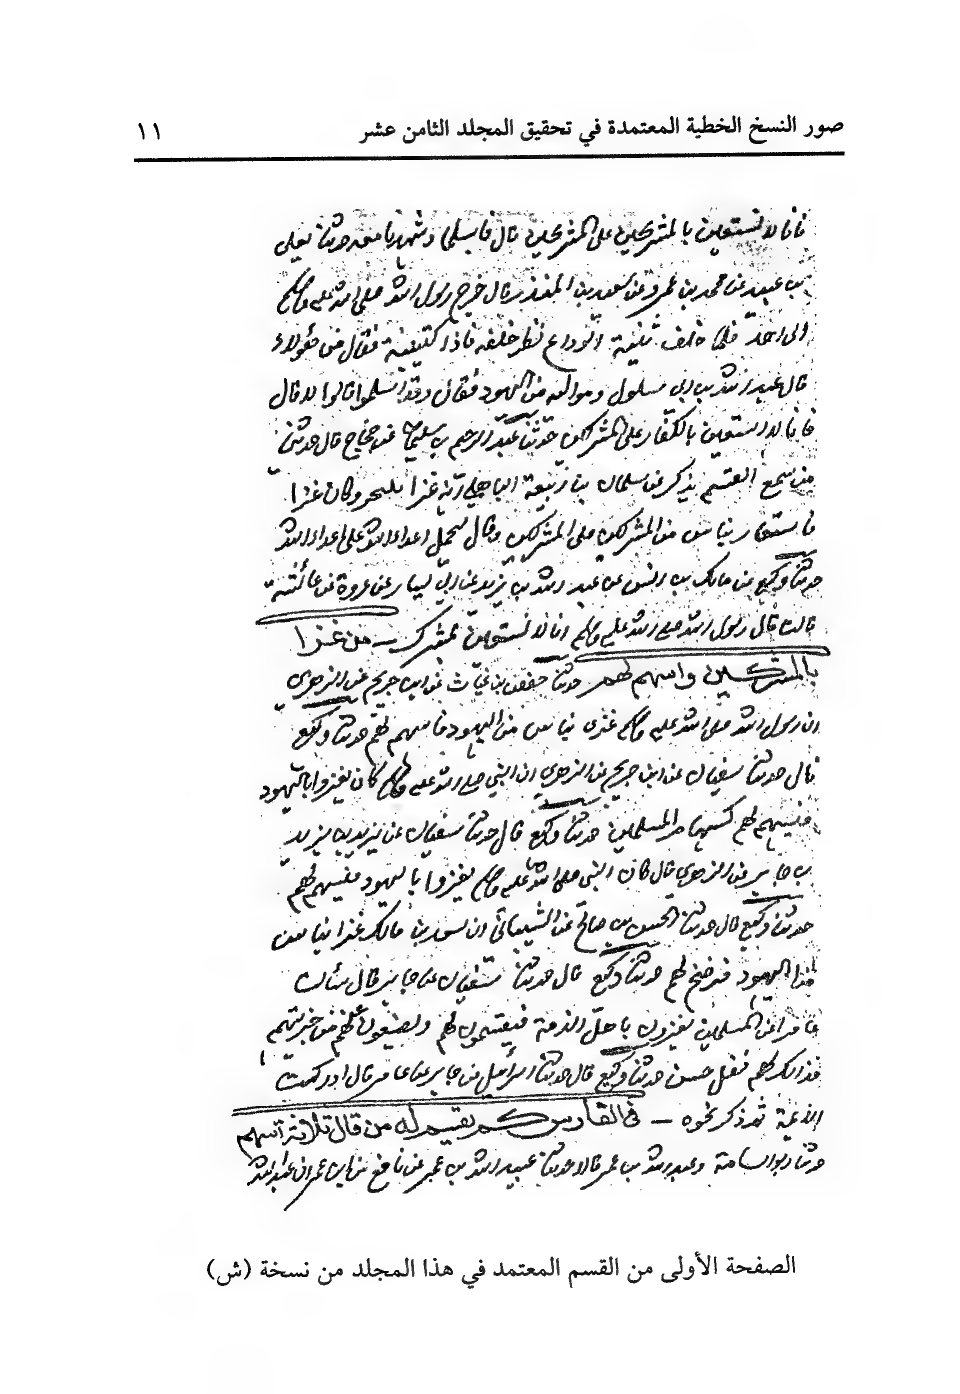 صور النسخ الخطية المعتمدة في تحقيق المجلد الثامن عشر ١١
فانا لا نستعين بالمشركين على المشركين قال فاسلما وشهدنا معه حدثنا يعلى
بن عبيد عن محمد بن عمرو عن سعد بن المنذر قال خرج رسول الله صلى الله عليه وسلم
الى احد فلما خلف ثنية الوداع نظر خلفه فاذا كتيبة فقال من هؤلاء
قال عبد الله بن ابي سلول ومواليه من اليهود فقال وقد اسلموا قالوا لا قال
فانا لا نستعين بالكفار على المشركين حدثنا عبد الرحيم بن سليمان عن حجاج قال حدثني
من سمع القسم يذكر عن سلمان بن ربيعة الباهلي انه غزا بلنجر وكان غزا
فاستعان بناس من المشركين على المشركين وقال نحمل اعداء الله على اعداء الله
حدثنا وكيع عن مالك بن انس عن عبد الله بن يزيد عن ابي نيار عن عروة عن عائشة
قالت قال رسول الله صلى الله عليه وسلم انا لا نستعين بمشرك - من غزا
بالمشركين واسهم لهم حدثنا حفص بن غياث عن ابن جريج عن الزهري
ان رسول الله صلى الله عليه وسلم غزى بناس من اليهود فاسهم لهم حدثنا وكيع
قال حدثنا سفيان عن ابن جريج عن الزهري ان النبي صلى الله عليه وسلم كان يغزوا باليهود
فيسهم لهم كسهام المسلمين حدثنا وكيع قال حدثنا سفيان عن يزيد بن يزيد
بن جابر عن الزهري قال كان النبي صلى الله عليه وسلم يغزوا باليهود فيسهم لهم
حدثنا وكيع قال حدثنا الحسن بن صالح عن الشيباني ان سعد بن مالك غزا بناس
من اليهود فرضخ لهم حدثنا وكيع قال حدثنا سفيان عن جابر قال سألت
عامرا عن المسلمين يغزون باهل الذمة فيقسمون لهم ويضعون عنهم من جزيتهم
فذالك لهم نفل حسن حدثنا وكيع قال حدثنا اسرائيل عن جابر عن عامر قال ادركت
الائمة ثم ذكر نحوه - في الفارس كم يقسم له من قال ثلاثة اسهم
حدثنا ابو اسامة وعبد الله بن نمير قالا حدثنا عبيد الله بن عمر عن نافع عن ابن عمر ان
الصفحة الأولى من القسم المعتمد في هذا المجلد من نسخة (ش)